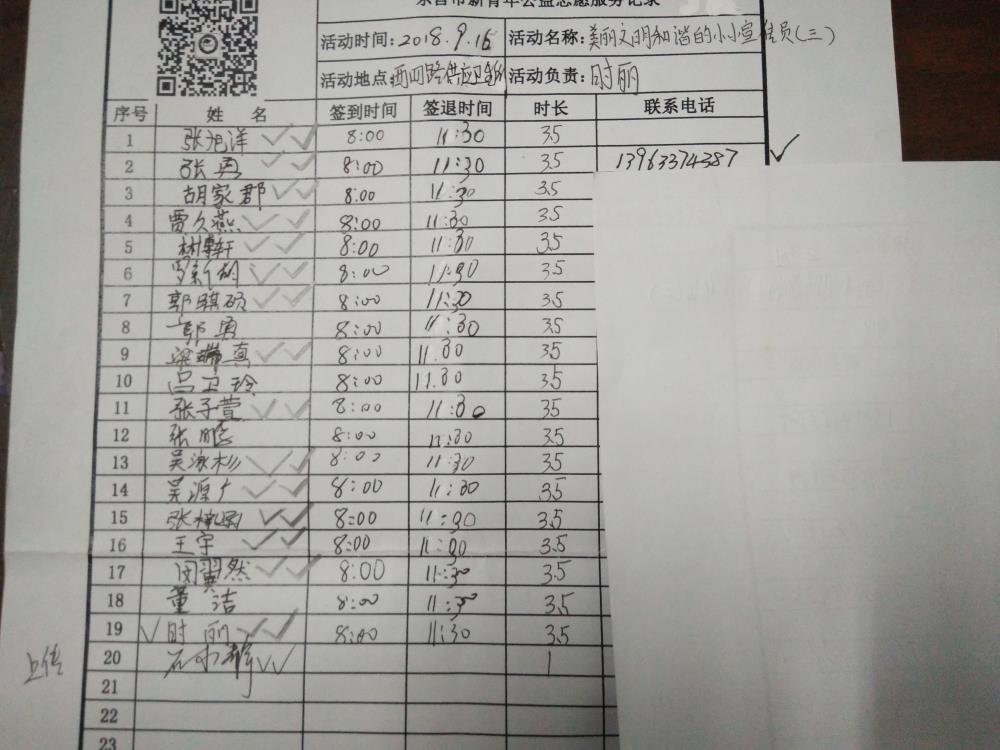 新青年公益志愿服务记录
活动时间:2018.9.16 活动名称:美丽文明和谐的小小宣传员(三)
活动地点: 活动负责:时丽
序号 姓 名 签到时间 签退时间 时长 联系电话
1 张旭洋 8:00 11:30 3.5
2 张勇 8:00 11:30 3.5 13963374387
3 胡家郡 8:00 11:30 3.5
4 贾久燕 8:00 11:30 3.5
5 8:00 11:30 3.5
6 8:00 11:30 3.5
7 郭骐硕 8:00 11:30 3.5
8 郭勇 8:00 11:30 3.5
9 8:00 11.30 3.5
10 吕卫玲 8:00 11.30 3.5
11 张子萱 8:00 11:30 35
12 张鹏 8:00 11:30 3.5
13 吴泳杉 8:00 11:30 3.5
14 吴源广 8:00 11:30 3.5
15 8:00 11:30 3.5
16 王宇 8:00 11:00 3.5
17 闵翼然 8:00 11:30 3.5
18 董洁 8:00 11:30 3.5
19 时丽 8:00 11:30 3.5
上传 20 1
21
22
23